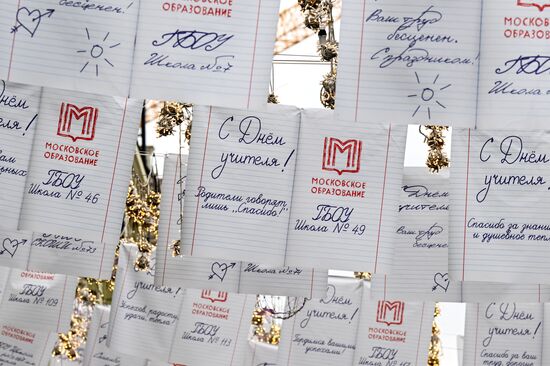 бесценен.
МОСКОВСКОЕ
ОБРАЗОВАНИЕ
ГБОУ
Школа №7
Ваш труд
бесценен.
С праздником!
МОСКОВСКОЕ
ОБРАЗОВАНИЕ
ГБОУ
Школа
Днём
учителя!
МОСКОВСКОЕ
ОБРАЗОВАНИЕ
ГБОУ
Школа № 46
С Днём
учителя!
Родители говорят
лишь „Спасибо!"
МОСКОВСКОЕ
ОБРАЗОВАНИЕ
ГБОУ
Школа № 49
Днём
учителя
Ваш труд
бесценен
С Днём
учителя!
Спасибо за знания
и душевное тепло
МОСКОВСКОЕ
ОБРАЗОВАНИЕ
ГБОУ
Школа № 109
Успехов, радости,
удачи, тепла!
МОСКОВСКОЕ
ОБРАЗОВАНИЕ
ГБОУ
Школа № 113
С Днём
учителя!
Гордимся вашими
успехами!
МОСКОВСКОЕ
ОБРАЗОВАНИЕ
ГБОУ
С Днём
учителя!
Спасибо за ваш